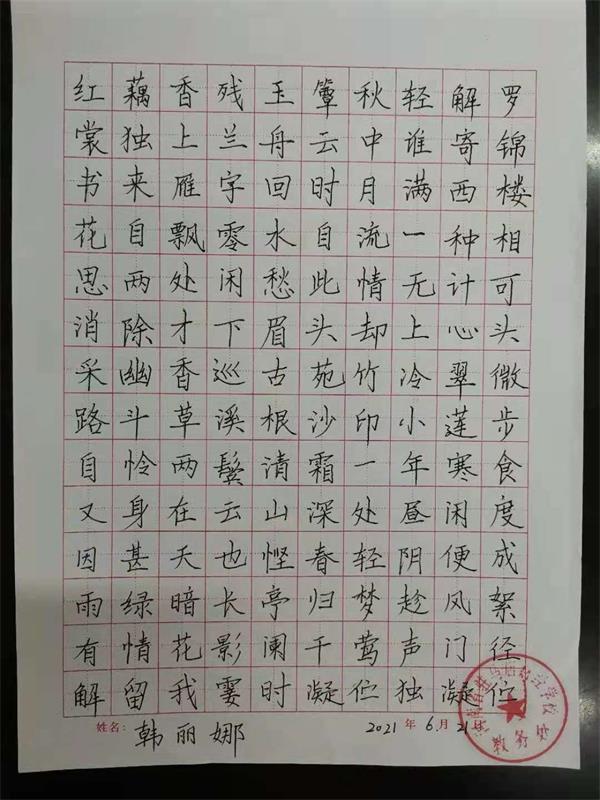 红藕香残玉簟秋轻解罗
裳独上兰舟云中谁寄锦
书来雁字回时月满西楼
花自飘零水自流一种相
思两处闲愁此情无计可
消除才下眉头却上心头
采幽香巡古苑竹冷翠微
路斗草溪根沙印小莲步
自怜两鬓清霜一年寒食
又身在云山深处昼闲度
因甚天也悭春轻阴便成
雨绿暗长亭归梦趁风絮
有情花影阑干莺声门径
解留我霎时凝伫独凝伫
姓名: 韩丽娜 2021年6月21日
教务处